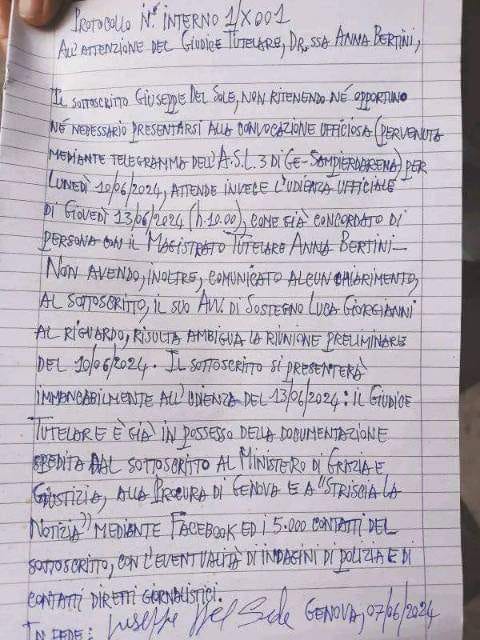 PROTOCOLLO N° INTERNO 1/X001
ALL'ATTENZIONE DEL GIUDICE TUTELARE, DR.SSA ANNA BERTINI,
IL SOTTOSCRITTO GIUSEPPE DEL SOLE, NON RITENENDO NÉ OPPORTUNO
NÉ NECESSARIO PRESENTARSI ALLA CONVOCAZIONE UFFICIOSA (PERVENUTA
MEDIANTE TELEGRAMMA DELL'A.S.L.3 DI GE-SAMPIERDARENA) PER
LUNEDÌ 10/06/2024, ATTENDE INVECE L'UDIENZA UFFICIALE
DI GIOVEDÌ 13/06/2024 (h.10.00), COME GIÀ CONCORDATO DI
PERSONA CON IL MAGISTRATO TUTELARE ANNA BERTINI-
NON AVENDO, INOLTRE, COMUNICATO ALCUN CHIARIMENTO,
AL SOTTOSCRITTO, IL SUO AVV. DI SOSTEGNO LUCA GIORGIANNI
AL RIGUARDO, RISULTA AMBIGUA LA RIUNIONE PRELIMINARE
DEL 10/06/2024. IL SOTTOSCRITTO SI PRESENTERÀ
IMMANCABILMENTE ALL'UDIENZA DEL 13/06/2024: IL GIUDICE
TUTELARE È GIÀ IN POSSESSO DELLA DOCUMENTAZIONE
SPEDITA DAL SOTTOSCRITTO AL MINISTERO DI GRAZIA E
GIUSTIZIA, ALLA PROCURA DI GENOVA E A "STRISCIA LA
NOTIZIA" MEDIANTE FACEBOOK ED I 5.000 CONTATTI DEL
SOTTOSCRITTO, CON L'EVENTUALITÀ DI INDAGINI DI POLIZIA E DI
CONTATTI DIRETTI GIORNALISTICI.
IN FEDE: Giuseppe Del Sole GENOVA, 07/06/2024